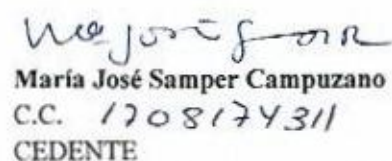 María José Samper Campuzano
C.C. 1708174311
CEDENTE